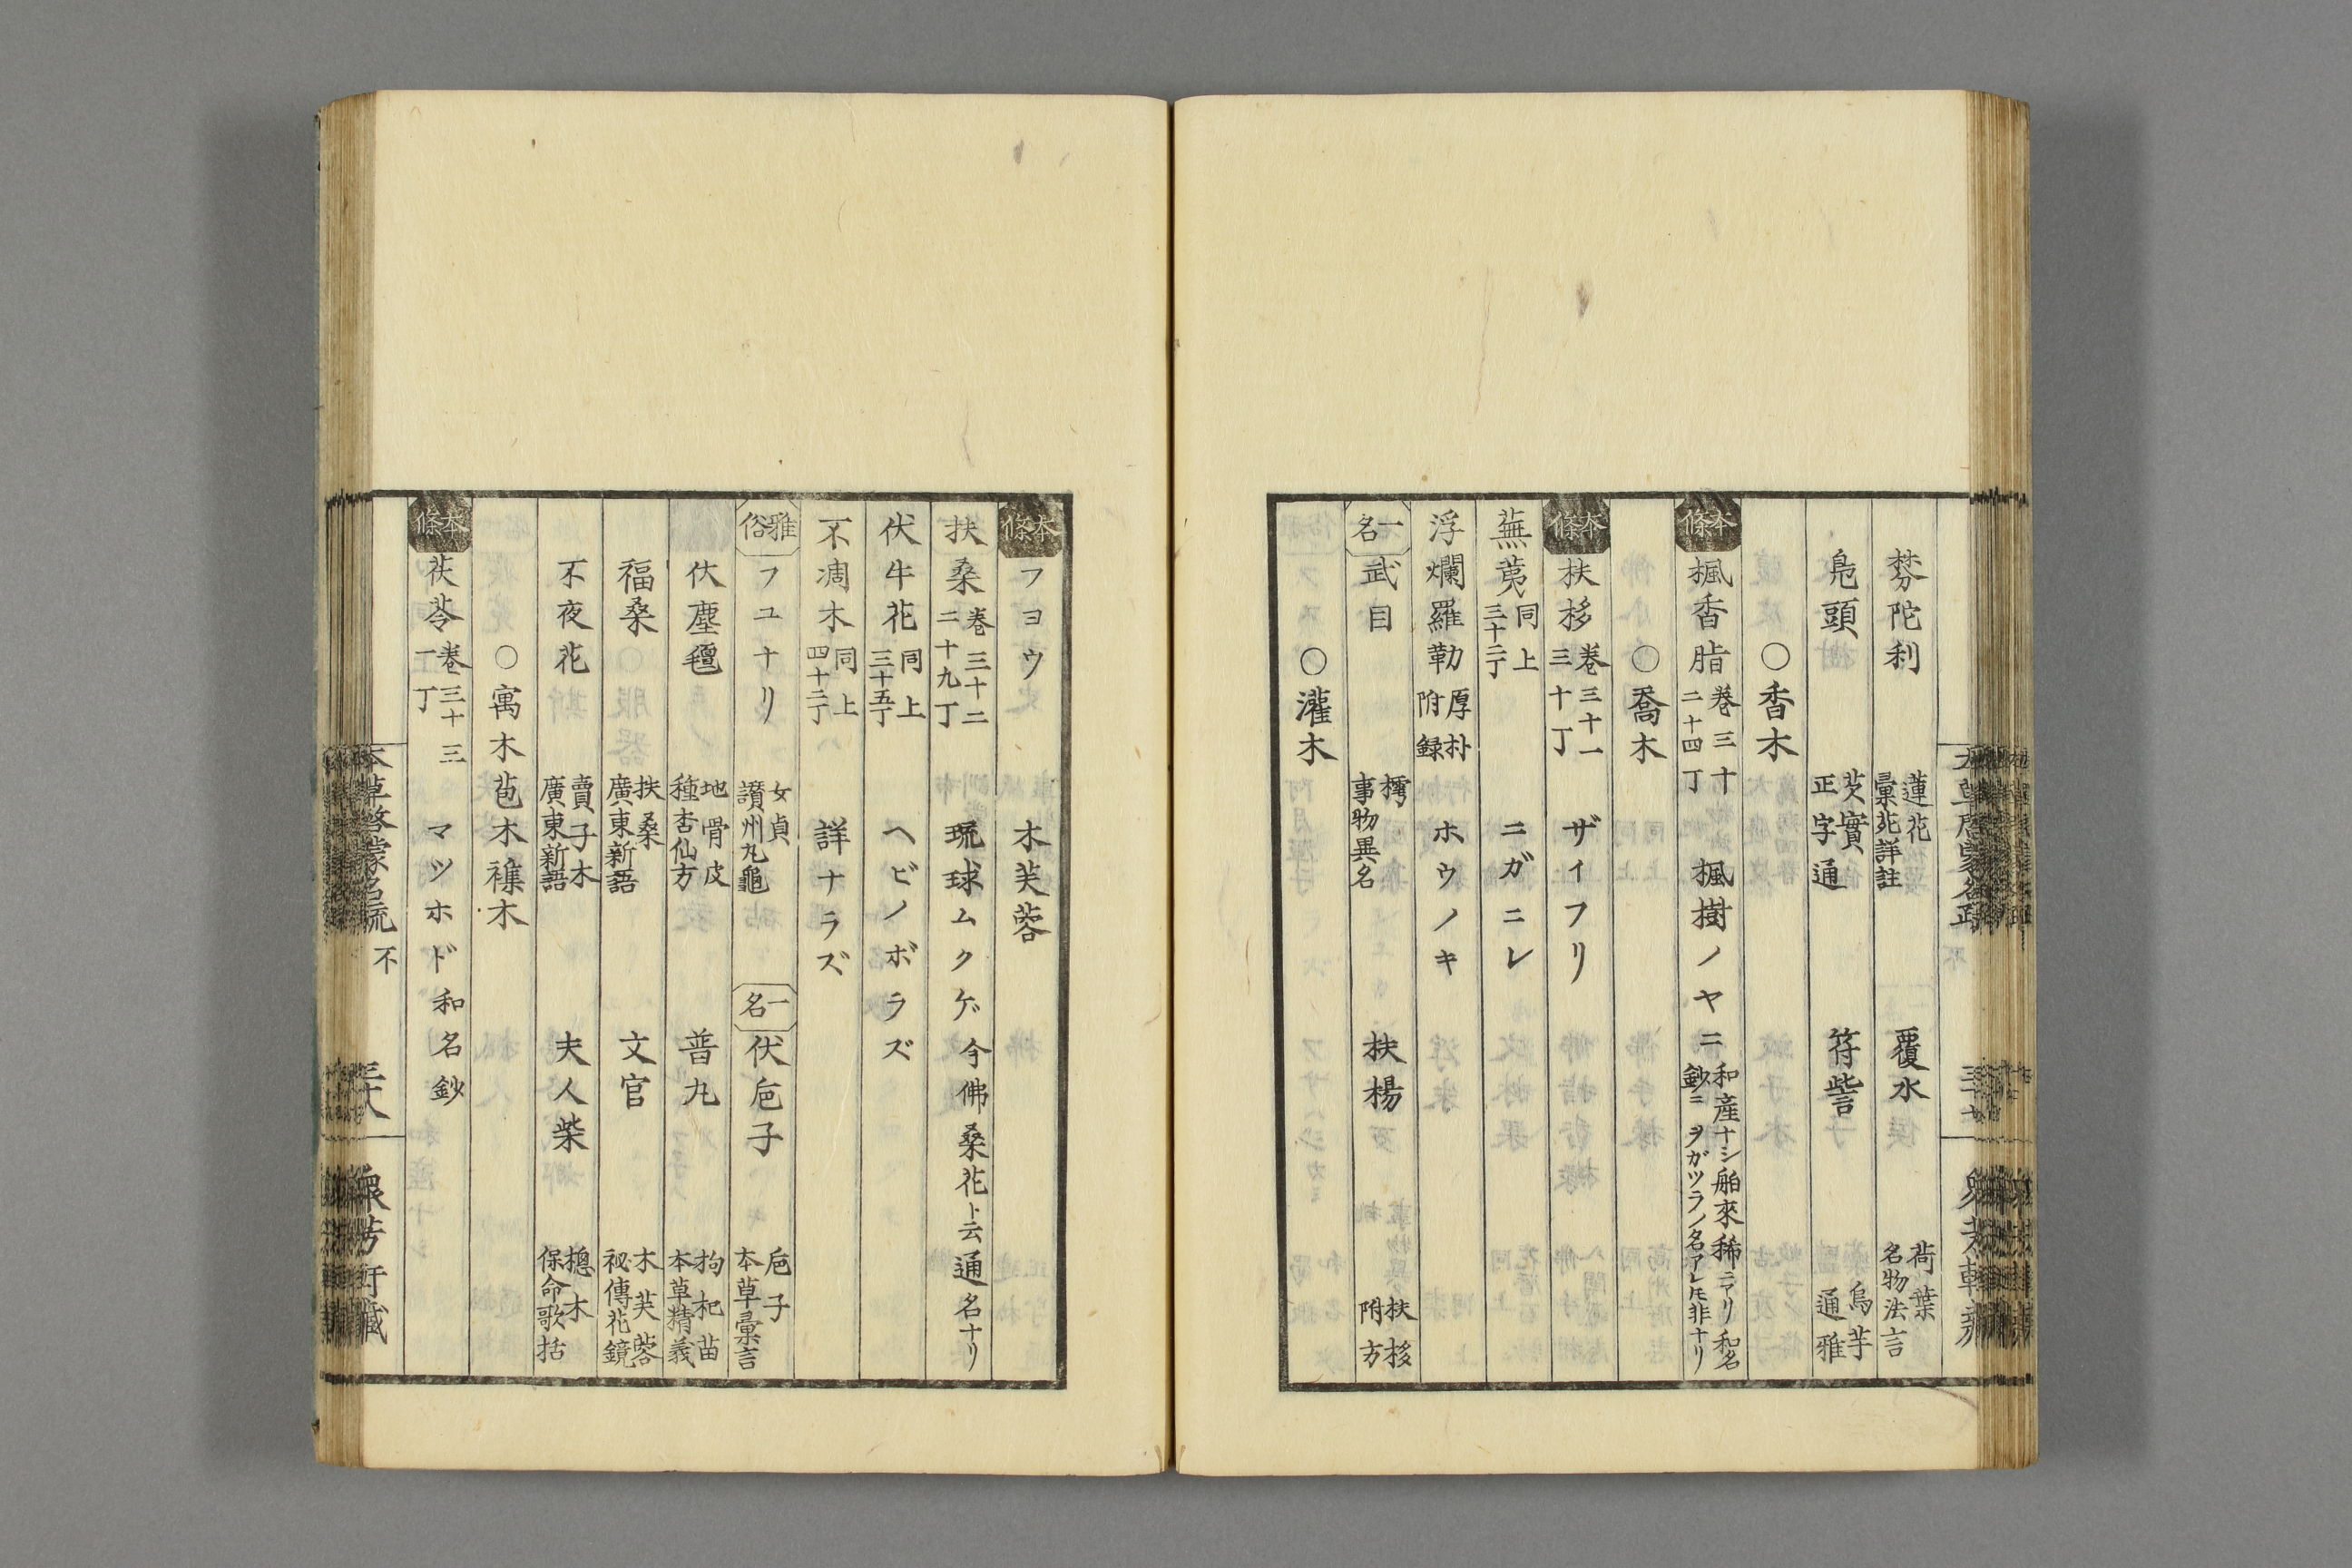 棼陀利 蓮花 彙苑詳註 覆水 荷葉 名物法言
鳧頭 芡實 正字通 符訾 烏芋 通雅
○香木
本條 楓香脂 巻三十 二十四丁 楓樹ノヤニ 和産ナシ舶來稀ニアリ和名 鈔ニヲガツラノ名アレ𪜈非ナリ
○喬木
本條 扶栘 巻三十一 三十丁 ザイフリ
蕪荑 同上 三十二丁 ニガニレ
浮爛羅勒 厚朴 附録 ホウノキ
一名 武目 樗 事物異名 扶楊 扶栘 附方
○灌木
本條 フヨウ 木芙蓉
扶桑 巻三十二 二十九丁 琉球ムクゲ 今佛桑花ト云通名ナリ
伏牛花 同上 三十五丁 ヘビノボラズ
不凋木 同上 四十二丁 詳ナラズ
雅俗 フユナリ 女貞 讃州丸龜 一名 伏巵子 巵子 本草彙言
伏塵𣰽 地骨皮 種杏仙方 普丸 拘杞苗 本草精義
福桑 扶桑 廣東新語 文官 木芙蓉 祕傳花鏡
不夜花 賣子木 廣東新語 夫人柴 摠木 保命歌括
○寓木苞木襍木
本條 茯苓 巻三十三 一丁 マツホド 和名鈔
本草啓蒙名疏 不 三十八 衆芳軒藏